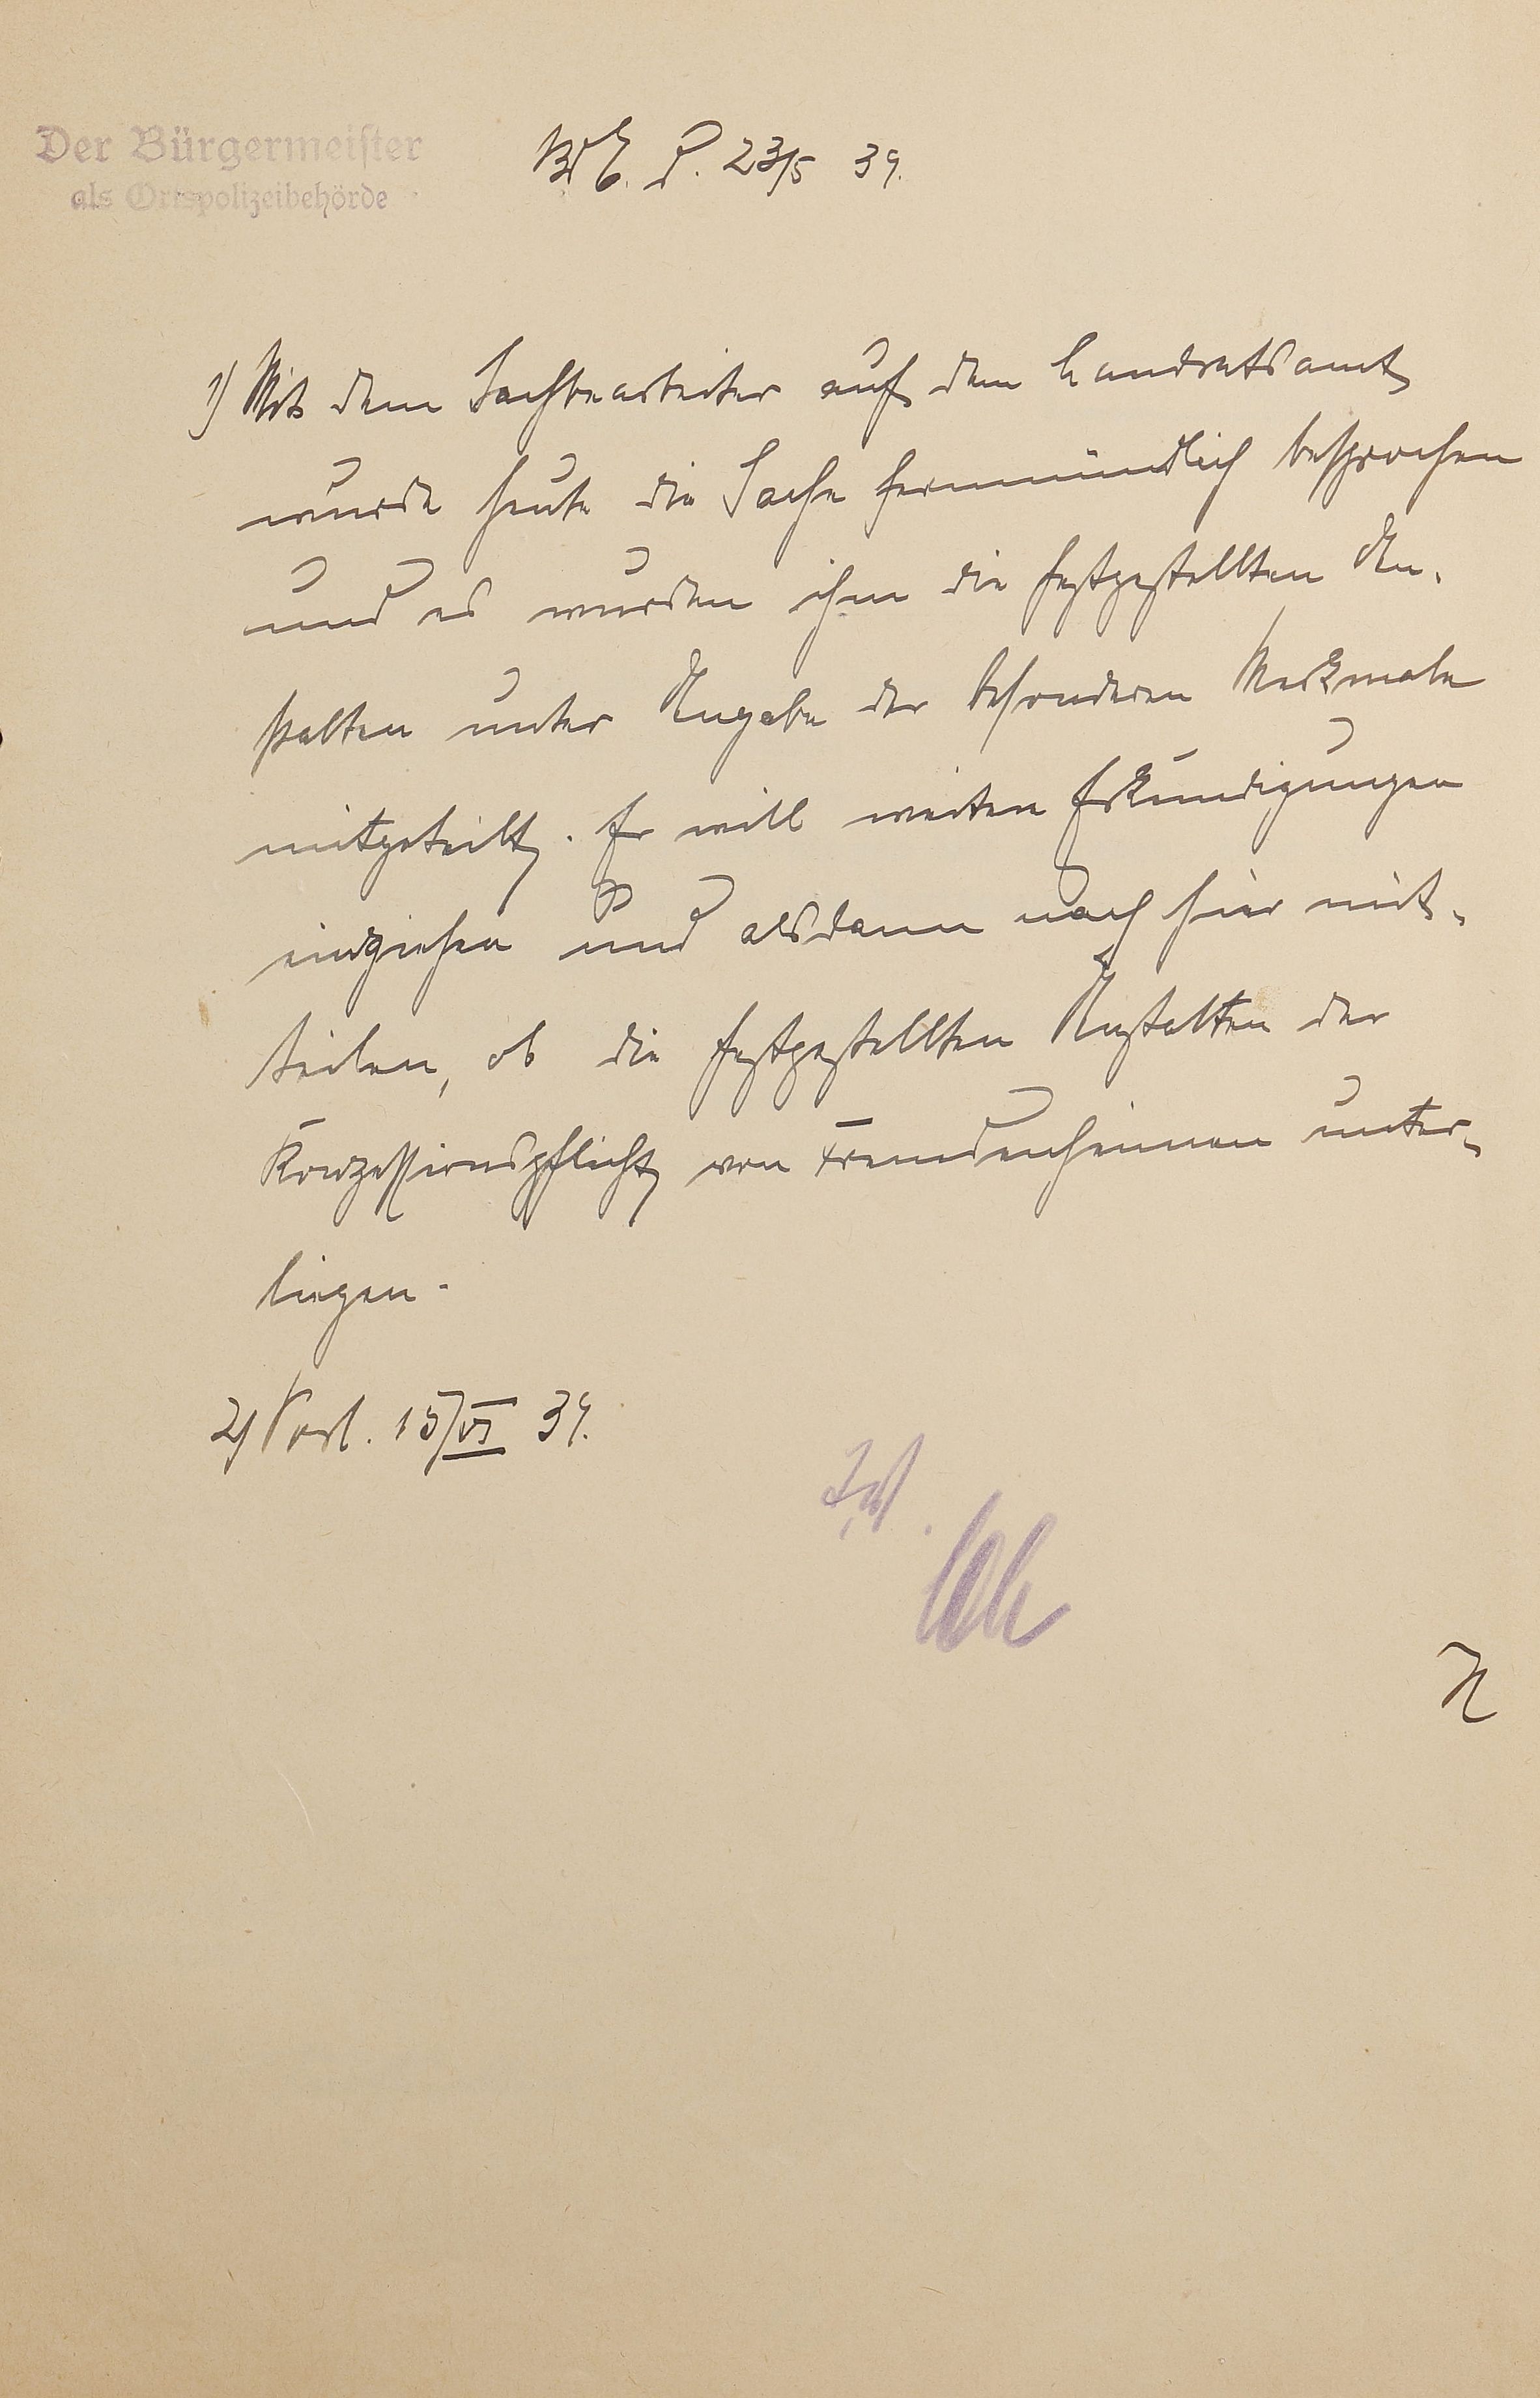 Der Bürgermeister
als Ortspolizeibehörde
d. 23/5 39.
1) Mit dem Sachbearbeiter auf dem Landratsamt
wurde heute die Sache fernmündlich besprochen
und es wurden ihm die festgestellten An-
stalten unter Angabe der besonderen Merkmale
mitgeteilt. Er will weitere Erkundigungen
einziehen und alsdann nach hier mit-
teilen, ob die festgestellten Anstalten der
Konzessionspflicht von Fremdenheimen unter-
liegen.
2) Vorl. 15/VI 39.